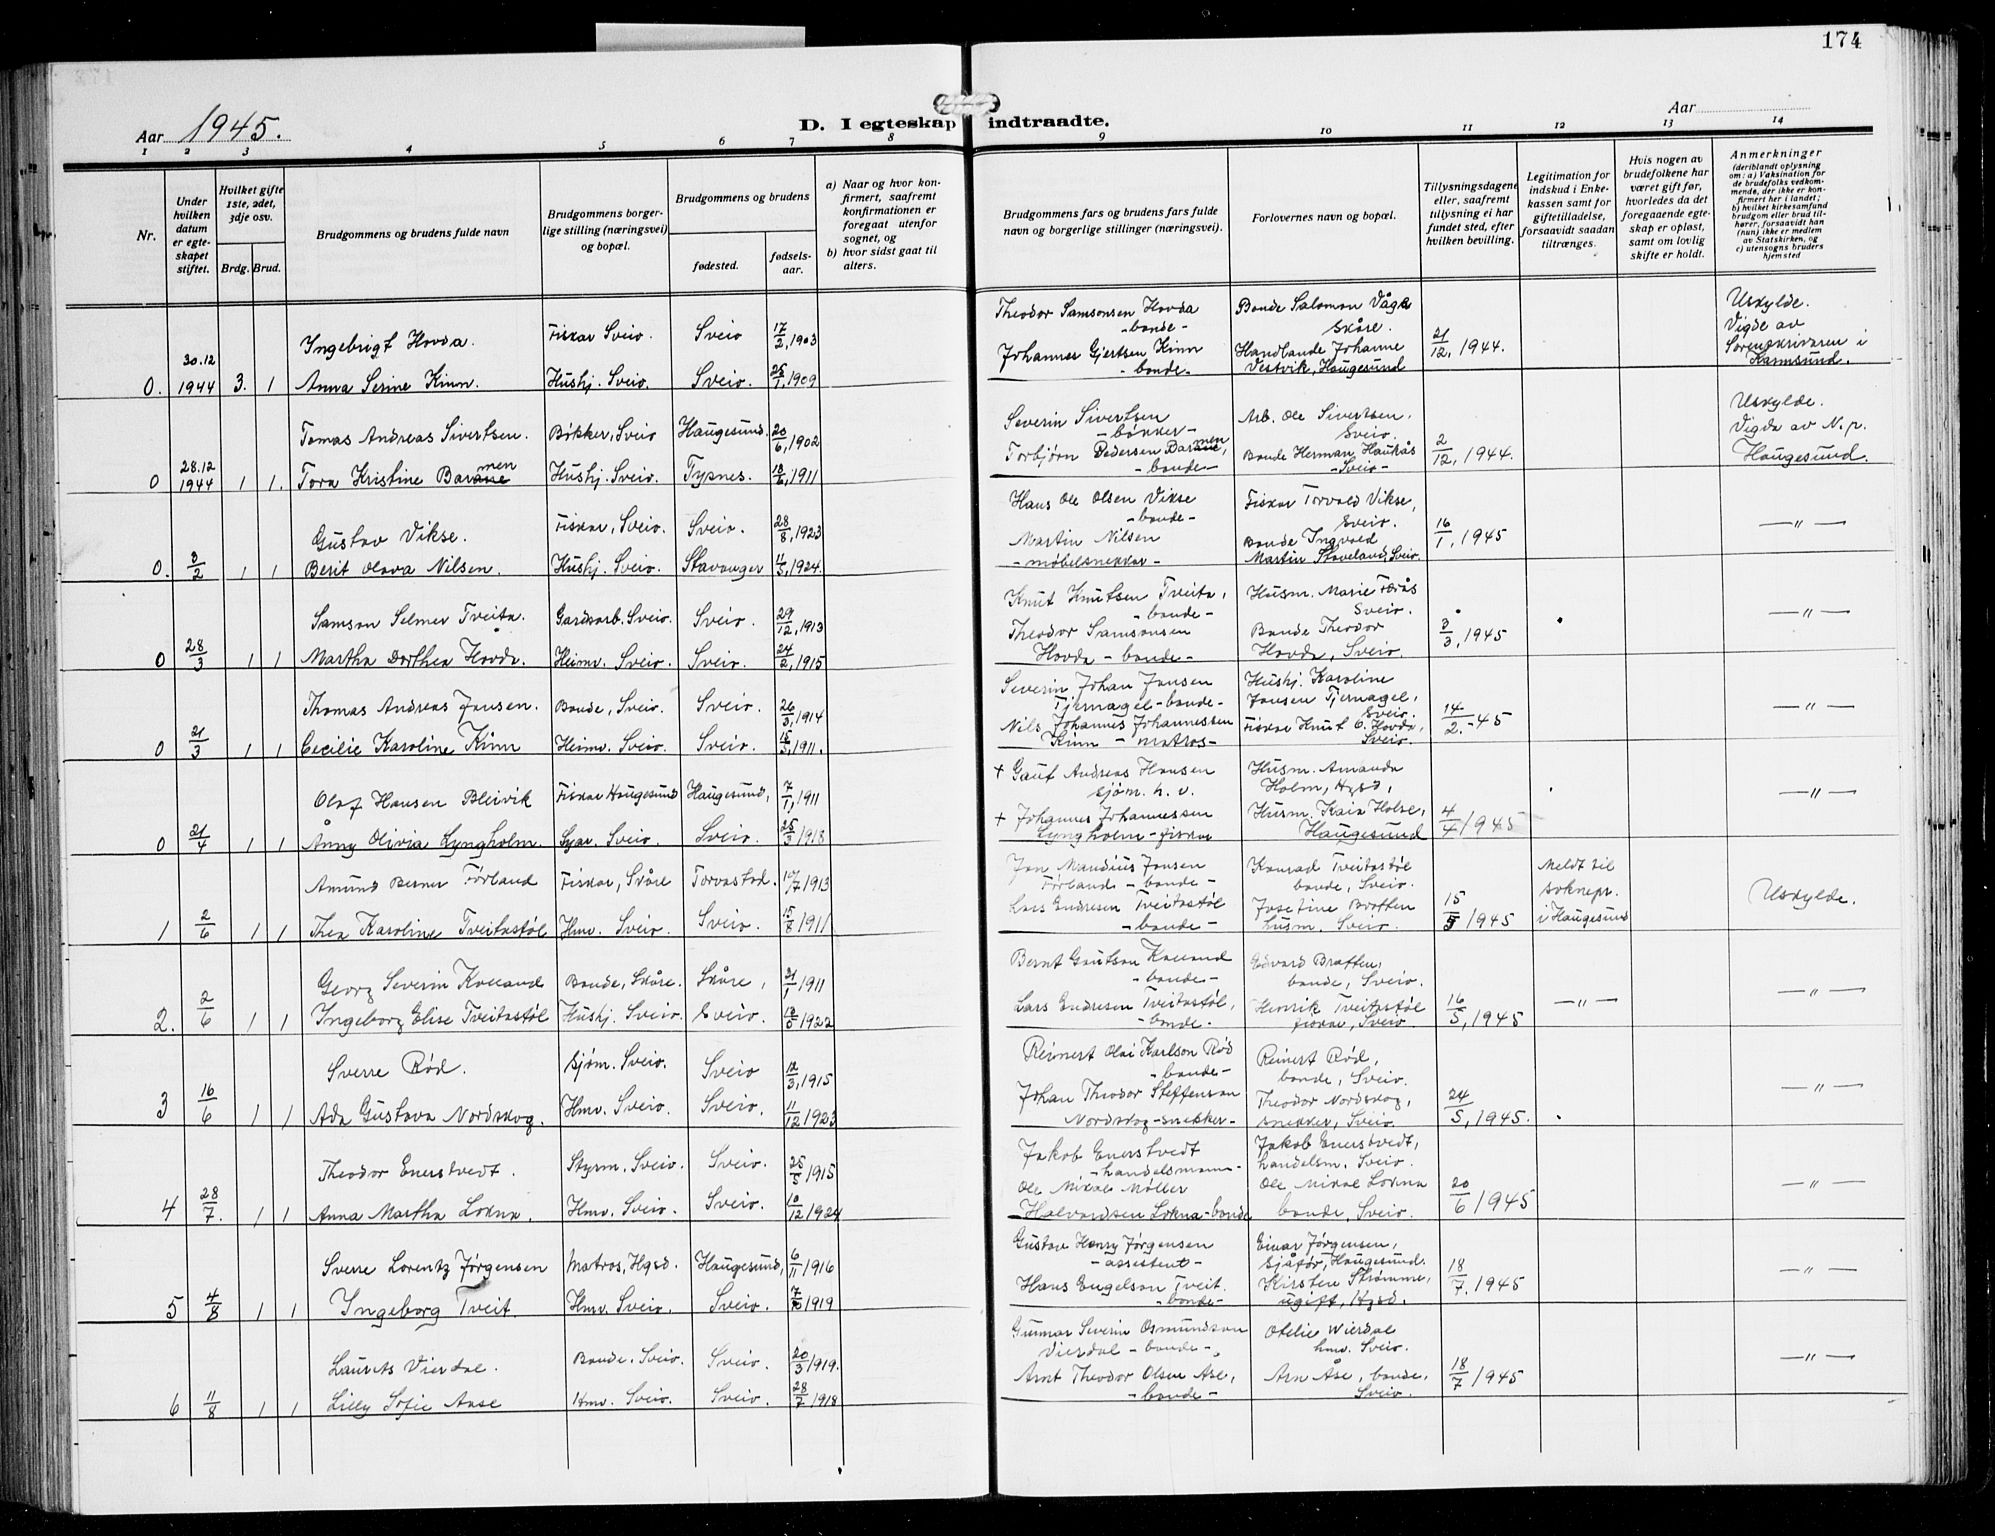 174
Aar 1945.
D. I egteskap indtraadte.
Aar
1 2 3 4 5 6 7 8 9 10 11 12 13 14
Nr.
Under hvilken datum er egteskapet stiftet.
Hvilket gifte 1ste, 2det, 3dje osv.
Brdg. Brud.
Brudgommens og brudens fulde navn
Brudgommens borgerlige stilling (næringsvei) og bopæl.
Brudgommens og brudens
fødested.
fødselsaar.
a) Naar og hvor konfirmert, saafremt konfirmationen er foregaat utenfor sognet, og
b) hvor sidst gaat til alters.
Brudgommens fars og brudens fars fulde navn og borgerlige stillinger (næringsvei).
Forlovernes navn og bopæl.
Tillysningsdagene eller, saafremt tillysning ei har fundet sted, efter hvilken bevilling.
Legitimation for indskud i Enkekassen samt for giftetilladelse, forsaavidt saadan tiltrænges.
Hvis nogen av brudefolkene har været gift før, hvorledes da det foregaaende egteskap er opløst, samt om lovlig skifte er holdt.
Anmerkninger
(deriblandt oplysning om: a) Vaksination for de brudefolks vedkommende, der ikke er konfirmert her i landet; b) hvilket kirkesamfund brudgom eller brud tilhører, forsaavidt han (hun) ikke er medlem av Statskirken, og c) utensogns bruders hjemsted
Ingebrigt Hovda. Fiskar Sveio. Sveio 17/2, 1903 Theodor Samsonsen Hovda -bonde- Bonde Salomon Våga Skåre. Uskylde.
0. 30.12 1944 3. 1 Anna Serine Kinn. Hushj. Sveio. Sveio. 25/1, 1909 Johannes Gjertsen Kinn -bonde- Handlande Johanne Vestvik, Haugesund 21/12, 1944. Vigde av Sorenskrivaren i Karmsund.
Tomas Andreas Sivertsen. Bøkker, Sveio Haugesund. 20/6, 1902 Severin Sivertsen -bøkker- Arb. Ole Sivertsen. Sveio. Uskylde.
0 28.12 1944 1 1. Tora Kristine Barmen Hushj. Sveio. Tysnes. 18/6, 1911 Torbjørn Pedersen Barmen, -bonde- Bonde Herman Haukås -Sveio- 2/12, 1944. Vigde av N.p. Haugesund.
Gustav Vikse. Fiskar, Sveio. Sveio. 28/8, 1923 Hans Ole Olsen Vikse -bonde- Fiskar Torvald Vikse, Sveio.
0. 3/2 1 1 Berit Olava Nilsen. Hushj. Sveio. Stavanger 11/5, 1924. Martin Nilsen -møbelsnekkar- Bonde Ingvald Martin Staveland, Sveio. 16/1, 1945 -"-
Samson Selmer Tveita. Gardsarb. Sveio. Sveio. 29/12, 1913 Knut Knutsen Tveita, -bonde- Husm. Marie Færås Sveio.
0 28/3 1 1 Martha Dorthea Hovda. Heimv. Sveio. Sveio. 24/2, 1915 Theodor Samsonsen Hovda -bonde- Bonde Theodor Hovda, Sveio. 3/3, 1945 -"-
Thomas Andreas Jensen. Bonde, Sveio. Sveio. 26/3, 1914 Severin Johan Jensen Tjernagel -bonde- Hushj. Karoline Jensen Tjernagel, Sveio.
0 21/3 1 1 Cecilie Karoline Kinn Heimv. Sveio. Sveio. 15/5, 1911. Nils Johannes Johannessen Kinn - matros- Fiskar Knut O. Hovda, Sveio. 14/2.-45 -"-
Olaf Hansen Bleivik Fiskar Haugesund Haugesund, 7/1, 1911 + Gauf Andreas Hansen sjøm. h. v. Husm. Amanda Holm, Hgsd,
0 21/4 1 1 Anny Olivia Lyngholm. Syar. Sveio. Sveio. 25/3 1918 + Johannes Johannessen Lyngholm - fiskar Husm. Kaia Holse, Haugesund 4/4 1945 -"-
Amund Berner Førland Fiskar, Skåre Torvastad. 10/7 1913 Jon Mandius Jensen Førland - bonde - Konrad Tveitastøl bonde, Sveio. Meldt til soknepr. i Haugesund
1 2/6 1 1 Thea Karoline Tveitastøl Hmv. Sveio. Sveio. 15/8 1911 Lars Endresen Tveitastøl -bonde- Josefine Bratten husm. Sveio. 15/5 1945 Uskylde.
Georg Severin Kvesand Bonde, Skåre. Skåre, 21/1 1911 Bernt Gautson Kvesand -bonde- Edvard Bratten, bonde, Sveio.
2. 2/6 1 1 Ingeborg Elise Tveitastøl Hushj. Sveio. Sveio. 1922 Lars Endresen Tveitastøl, -bonde- Henrik Tveitastøl fiskar, Sveio. 16/5, 1945 -"- -"-
Sverre Rød. Sjøm. Sveio. Sveio 12/3, 1915 Reinert Olai Karlson Rød -bonde- Reinert Rød, bonde, Sveio.
3 16/6 1 1 Ada Gustava Nordskog. Hmv. Sveio. Sveio. 11/12 1923 Johan Theodor Steffenson Nordskog -snekker- Theodor Nordskog, snekker, Sveio. 24/5, 1945. -"-
Theodor Enerstvedt. Styrm. Sveio. Sveio. 25/5 1915 Jakob Enerstvedt -handelsmann- Jakob Enerstvedt, handelsm. Sveio.
4 28/7. 1 1 Anna Martha Lokna. Hmv. Sveio. Sveio. 10/12 1924 Ole Mikal Møller Halvardsen Lokna -bonde Ole Mikal Lokna bonde, Sveio. 20/6 1945 -"-
Sverre Lorentz Jørgensen Matros, Hgsd. Haugesund, 6/11 1916 Gustav Henry Jørgensen -assistent- Einar Jørgensen, Sjåfør, Haugesund.
5 4/8 1 1 Ingeborg Tveit. Hmv. Sveio. Sveio. 1919 Hans Engelson Tveit. -bonde- Kirsten Strømme, ugift, Hgsd. 18/7. 1945 -"-
Laurits Vierdal. Bonde. Sveio. Sveio. 20/3 1919. Gunnar Severin Osmundson Vierdal - bonde-, Otelie Wierdal hmv. Sveio.
6 11/8 1 1 Lilly Sofie Aase Hmv. Sveio. Sveio. 28/7 1918 Arnt Theodor Olsen Ase, -bonde- Arn Åse, bonde, Sveio. 18/7 1945 -"-